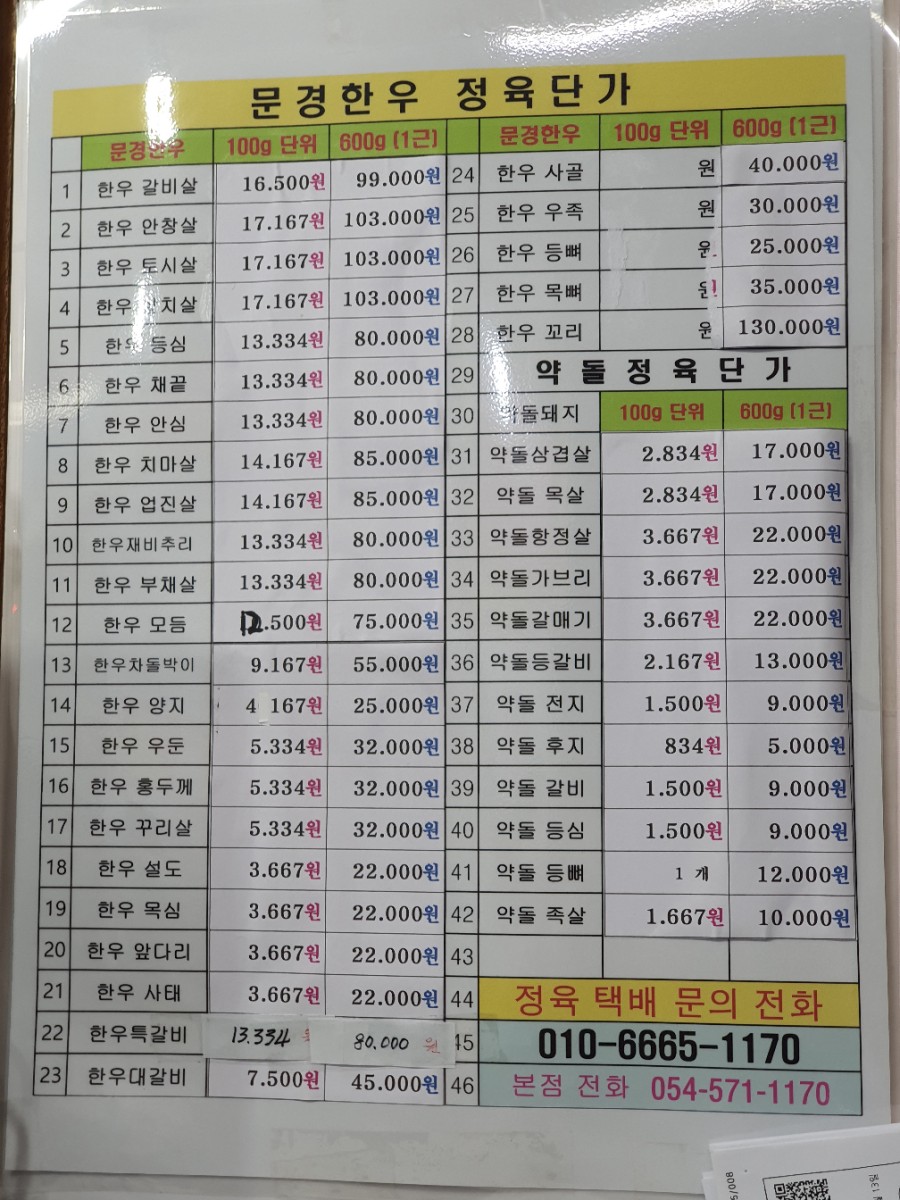 문경한우 정육단가
문경한우 100g 단위 600g (1근)
1 한우 갈비살 16.500원 99.000원
2 한우 안창살 17.167원 103.000원
3 한우 토시살 17.167원 103.000원
4 한우 치살 17.167원 103.000원
5 한우 등심 13.334원 80.000원
6 한우 채끝 13.334원 80.000원
7 한우 안심 13.334원 80.000원
8 한우 치마살 14.167원 85.000원
9 한우 업진살 14.167원 85.000원
10 한우재비추리 13.334원 80.000원
11 한우 부채살 13.334원 80.000원
12 한우 모듬 12.500원 75.000원
13 한우차돌박이 9.167원 55.000원
14 한우 양지 4 167원 25.000원
15 한우 우둔 5.334원 32.000원
16 한우 홍두께 5.334원 32.000원
17 한우 꾸리살 5.334원 32.000원
18 한우 설도 3.667원 22.000원
19 한우 목심 3.667원 22.000원
20 한우 앞다리 3.667원 22.000원
21 한우 사태 3.667원 22.000원
22 한우특갈비 13.334 80.000 원
23 한우대갈비 7.500원 45.000원
문경한우 100g 단위 600g (1근)
24 한우 사골 원 40.000원
25 한우 우족 원 30.000원
26 한우 등뼈 원 25.000원
27 한우 목뼈 원 35.000원
28 한우 꼬리 원 130.000원
29 약돌정육단가
30 약돌돼지 100g 단위 600g (1근)
31 약돌삼겹살 2.834원 17.000원
32 약돌 목살 2.834원 17.000원
33 약돌항정살 3.667원 22.000원
34 약돌가브리 3.667원 22.000원
35 약돌갈매기 3.667원 22.000원
36 약돌등갈비 2.167원 13.000원
37 약돌 전지 1.500원 9.000원
38 약돌 후지 834원 5.000원
39 약돌 갈비 1.500원 9.000원
40 약돌 등심 1.500원 9.000원
41 약돌 등뼈 1 개 12.000원
42 약돌 족살 1.667원 10.000원
43
44 정육 택배 문의 전화
45 010-6665-1170
46 본점 전화 054-571-1170